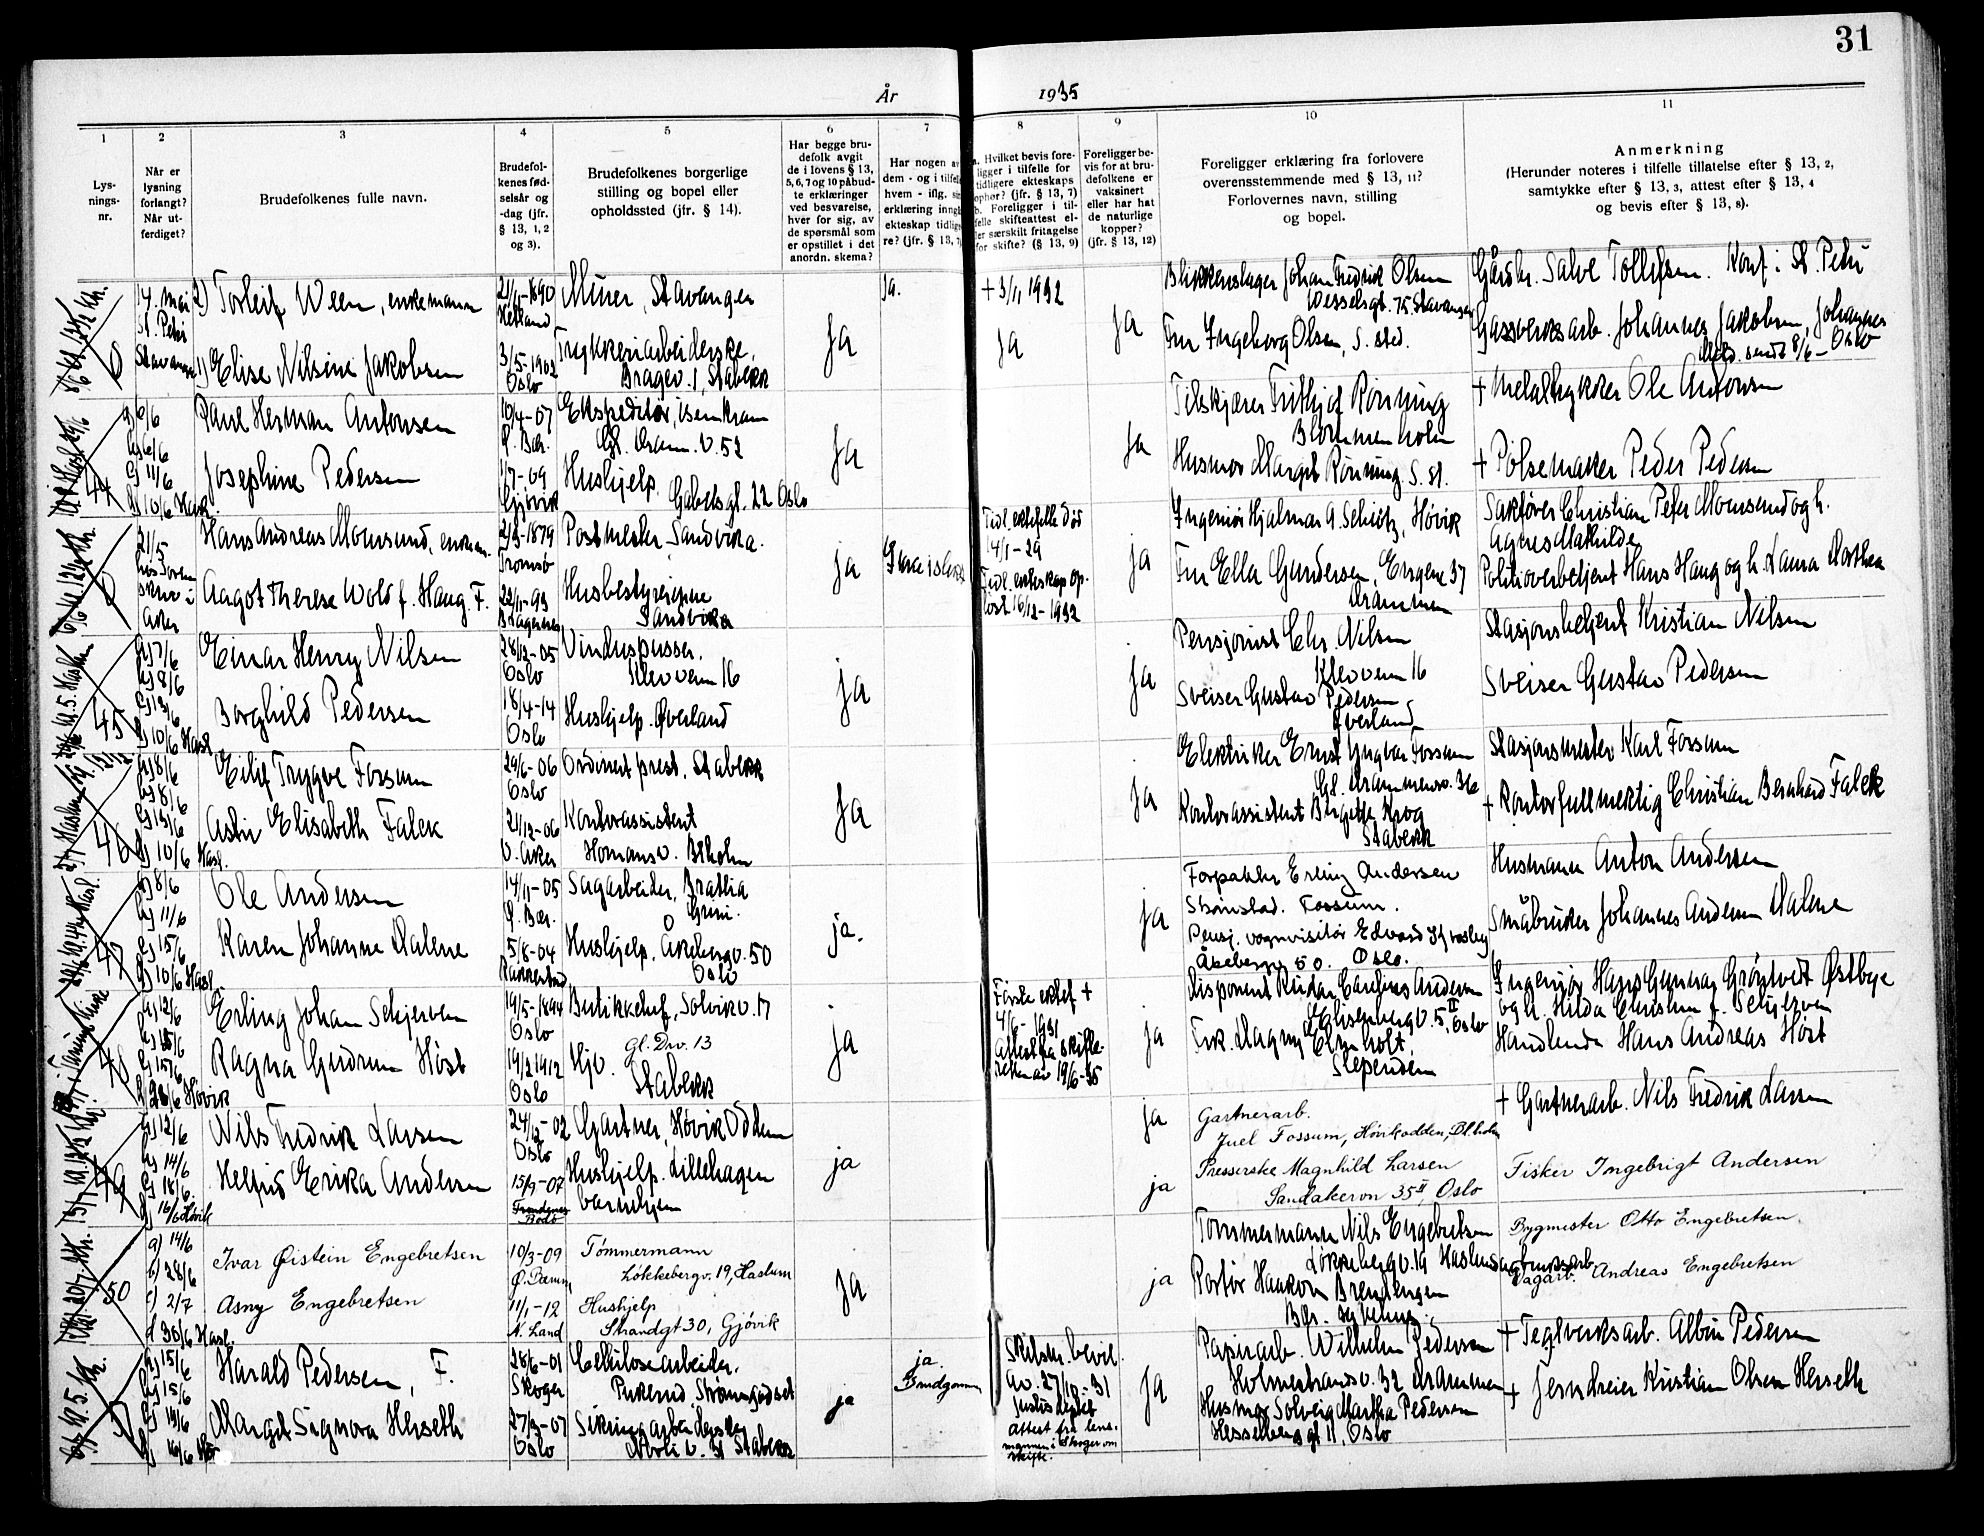 31
År 1935
1 2 3 4 5 6 7 8 9 10 11
Lysningsnr.
Når er lysning forlangt? Når utferdiget?
Brudefolkenes fulle navn.
Brudefolkenes fødselsår og -dag (jfr. § 13, 1, 2 og 3).
Brudefolkenes borgerlige stilling og bopel eller opholdssted (jfr. § 14).
Har begge brudefolk avgit de i lovens § 13, 5, 6, 7 og 10 påbudte erklæringer ved besvarelse, hver for sig, av de spørsmål som er opstillet i det anordn. skema?
Har nogen av dem - og i tilfelle hvem - iflg.
erklæring
ekteskap tidlige
re? (jfr. § 13,
Hvilket bevis foreligger i tilfelle for tidligere ekteskaps ophør? (jfr. § 13, 7)
b. Foreligger i tilfelle skifteattest eller særskilt fritagelse for skifte? (§ 13, 9)
Foreligger bevis for at brudefolkene er vaksinert eller har hat de naturlige kopper? (jfr. § 13, 12)
Foreligger erklæring fra forlovere overensstemmende med § 13, 11? Forlovernes navn, stilling og bopel.
Anmerkning
(Herunder noteres i tilfelle tillatelse efter § 13, 2, samtykke efter § 13, 3, attest efter § 13, 4 og bevis efter § 13, 8).
14. mai St. Petri Stavanger
2) Torleif Ween, enkemann
21/11-1890 Hetland
Murer, Stavanger
Ja
Ja.
+ 3/11 1932
Ja
Ja
Blikkenslager Johan Fredrik Olsen
Wesselsgt. 75 Stavanger
Gårdbr. Salve Tollefsen. Konf. i St. Petri
1) Elise Nilsine Jakobsen
3/5-1902 Oslo
Trykkeriarbeiderske,
Bragev. 1, Stabekk
Fru Ingeborg Olsen, S. sted.
Gassverksarb. Johannes Jakobsen, Johannes
Meld. sendt 8/6 - Oslo
44
a) 6/6
b) 6/6
c) 11/6
d) 10/6 Hasl.
Paul Herman Antonsen
10/4-07 Ø. Bær.
Ekspeditør, isenkram
Gl. Dram. v. 52
Ja
Ja
Tilskjærer Frithjof Rønning
Blommenholm
+ Metaltrykker Ole Antonsen
Josephine Pedersen
1/7-09 Gjøvik
Hushjelp.
Gabelsgt. 22 Oslo
Husmor Margit Rønning S. st.
+ Pølsemaker Peder Pedersen
21/5
Aker
Hans Andreas Mounsund, enkem.
2/3-1879 Tromsø
Postmester Sandvika.
ja
Tidl. ektefelle død
14/1-29
ja
Ingeniør Hjalmar A. Schiøtz, Høvik
Sakfører Christian Peter Mounsund og h.
Agnes Mathilde
Aagot Therese Wold f. Haug. F.
22/11-93 Bragernes
Husbestyrerinne
Sandvika
Tidl. ekteskap op-
løst 16/12-1932
Fru Ella Gundersen, Engene 37
Drammen
Politioverbetjent Hans Haug og h. Laura Dorthea
45
a) 7/6
b) 8/6
c) 13/6
d) 10/6 Hasl.
Einar Henry Nilsen
28/12-05 Oslo
Vinduspusser.
Kleivveien 16
Ja
Ja
Pensjonist Chr. Nilsen
Kleivveien 16
Stasjonsbetjent Kristian Nilsen
Borghild Pedersen
18/4-14 Oslo
Hushjelp. Øverland
Sveiser Gustav Pedersen
Øverland
Sveiser Gustav Pedersen
46
a) 8/6
b) 8/6
c) 13/6
d) 10/6 Hasl.
Eilif Trygve Fossum
29/6-06 Oslo
Ordinert prest. Stabekk
Ja
Ja
Elektriker Ernst Yngvar Fossum
Gl. Drammensv. 36
Stasjonsmester Karl Fossum
Astri Elisabeth Falck
21/12-06 V. Aker
Kontorassistent
Homansv. Blholm
Kontorassistent Birgitte Krog
Stabekk
+ Kontorfullmektig Christian Bernhard Falck
47
a) 8/6
b) 11/6
c) 15/6
d) 10/6 Hasl.
Ole Andersen
14/11-05 Ø. Bær.
Sagarbeider, Brattlia
Grini.
ja.
ja
Forpakter Erling Andersen
Strømstad. Fossum.
Husmann Anton Andersen
Karen Johanne Dalene
5/8-04 Rakkestad
Hushjelp, Åkebergv. 50
Oslo
Pensj. vognvisitør Edvard
Åkebergv. 50. Oslo.
Småbruker Johannes Andersen Dalene
48
a) 12/6
b) 15/6
c) 15/6
Høvik
Erling Johan Schjerven
19/5-1894 Oslo
Butikkchef, Solvikv. 17
ja
Første ektef. +
4/6-1931
Attest fra skifteretten av 19/6-35
ja
Disponent Reidar Andersen
Ekebergv. 5 II, Oslo
Ingeniør Hans Gunnar Grøntvedt Østbye
og h. Hilda Christine f. Schjerven
Ragna Gudrun Høst
19/2 1912 Oslo
Hjv.
Gl. Drv. 13
Stabekk
Frk. Dagny Elmholt,
Slependen
Handlende Hans Andreas Høst
49
a) 12/6
b) 14/6
c) 18/6
d) 16/6 Høvik
Nils Fredrik Larsen
24/12-02 Oslo
Gartner, Høvik Odden
ja
ja
Gartnerarb.
Juel Fossum, Høvikodden, Bl.holm
+ Gartnerarb. Nils Fredrik Larsen
Helfrid Erika Andersen
15/9-07 Bodø
Hushjelp. Lillehagen
barnehjem
ja
Presserske Magnhild Larsen
Sandakervn 35 II, Oslo
Fisker Ingebrigt Andersen
50
a) 14/6
b) 28/6
c) 2/7
d) 30/6 Hasl.
Ivar Øistein Engebretsen
10/3-09 Ø. Bærum
Tømmermann
Løkkebergv. 19, Haslum
Ja
ja
Tømmermann Nils Engebretsen
Løkkebergv. 19 Haslum
Bygmester Otto Engebretsen.
Asny Engebretsen
11/1-12 N. Land
Hushjelp
Strandgt 30, Gjøvik
Portør Haakon Brendengen
Bær. sykehus.
Sagbruksarb.
Dagarb. Andreas Engebretsen
a) 15/6
b) 15/6
c) 19/6
d) 16/6
Harald Pedersen, F.
28/6-01 Skoger
Cellulosearbeider.
Pukerud Strømsgodset
ja
ja.
Brudgommen
Skilsm. bevil.
av. 27/10-31
Justisdeptet
attest fra lens-
mannen i Skoger om
skifte.
Ja
Papirarb. Wilhelm Pedersen
Holmestrandsv. 32 Drammen
+ Teglverksarb. Albin Pedersen
Margit Signora Herseth
27/3-07 Oslo
Stabekk
Husmor Solveig Martha Pedersen
Hesselbergsgt 11, Oslo
+ Jerndreier Kristian Olsen Herseth